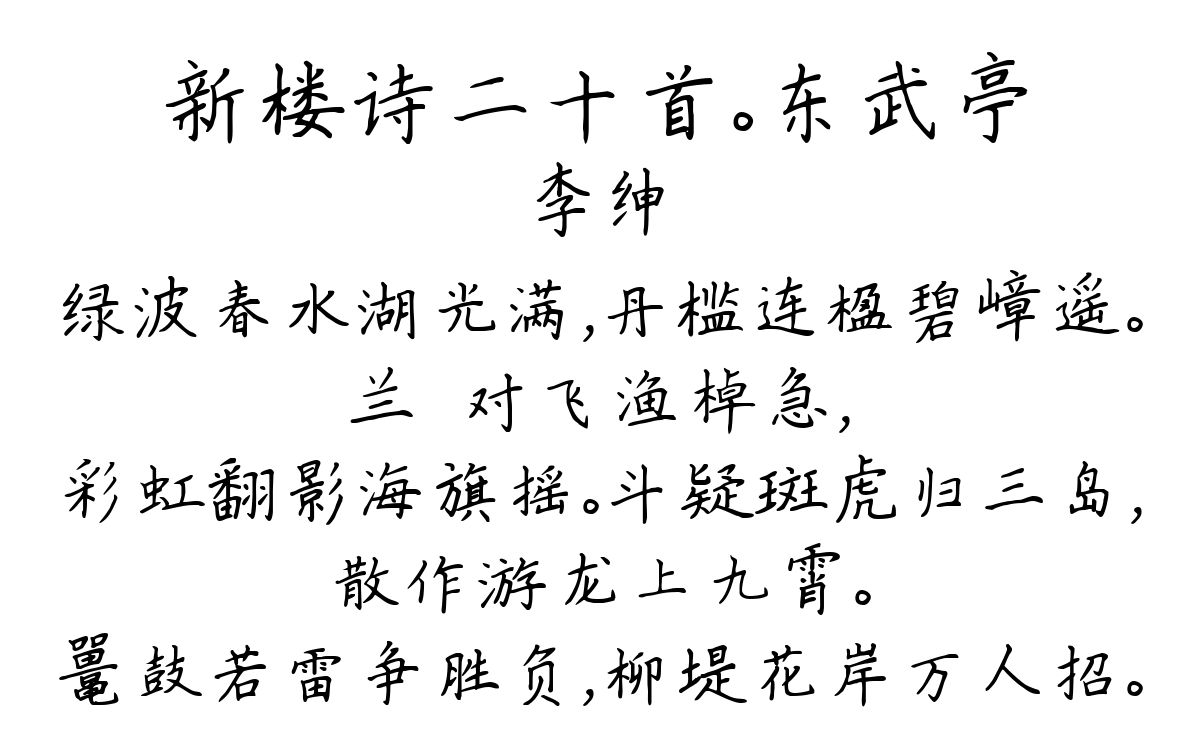 新楼诗二十首。东武亭
李绅
绿波春水湖光满,丹槛连楹碧嶂遥。
兰 对飞渔棹急,
彩虹翻影海旗摇。斗疑斑虎归三岛,
散作游龙上九霄。
鼍鼓若雷争胜负,柳堤花岸万人招。